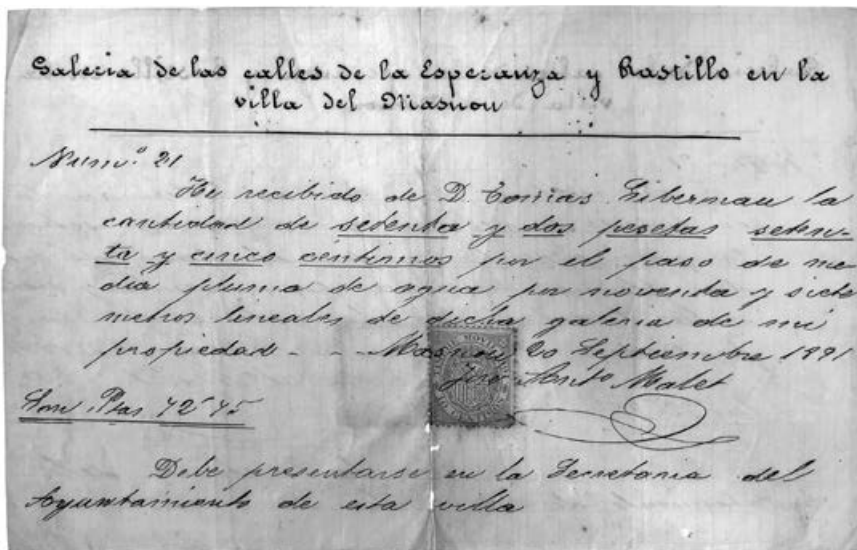 Galeria de las calles de la Esperanza y Rastillo en la
villa del Masnou
Num.º 21
He recibido de D. Tomás Gibernau la
cantidad de setenta y dos pesetas seten-
ta y cinco centimos por el paso de me
dia pluma de agua por noventa y siete
metros lineales de dicha galeria de mi
propiedad - - Masnou 20 Septiembre 1891
José Antº Malet
Son Ptas 72'75
Debe presentarse en la Secretaria del
Ayuntamiento de esta villa